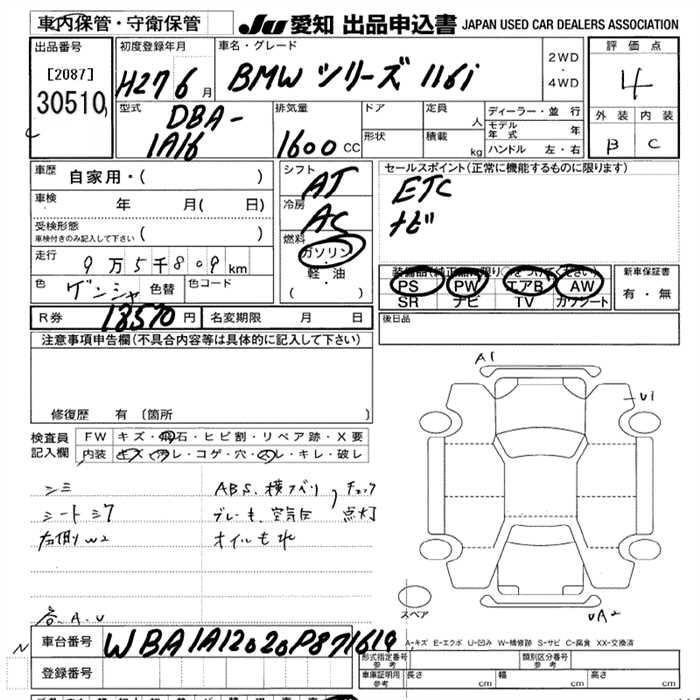 車内保管・守衛保管
JU 愛知 出品申込書 JAPAN USED CAR DEALERS ASSOCIATION
出品番号
[2087]
30510
初度登録年月
H27 6月
車名・グレード
BMW シリーズ 116i
2WD
・
4WD
評価点
4
外装 内装
B C
型式
DBA-
1A16
排気量
1600 CC
ドア
形状
定員 人
積載 kg
ディーラー・並行
モデル年式 年
ハンドル 左・右
車歴 自家用・( )
車検 年 月( 日)
受検形態
車検付きのみ記入して下さい ( )
走行 9万5千809km
色 ゲンシャ 色替 色コード
シフト
AT
冷房
AC
燃料
ガソリン
・
軽・油
( )
セールスポイント(正常に機能するものに限ります)
ETC
ナビ
PS PW エアB AW
SR ナビ TV カワシート
新車保証書
有・無
R券 18570円 名変期限 月 日
後日品
注意事項申告欄(不具合内容等は具体的に記入して下さい)
修復歴 有 〔箇所 〕
検査員
記入欄
FW キズ・飛石・ヒビ割・リペア跡・X要
内装 キズ・汚レ・コゲ・穴・スレ・キレ・破レ
シミ
シートシワ
右側W2
ABS、横スベリ、チェック
ブレーキ、空気圧 点灯
オイルもれ
A1
U1
UA2
スペア
A-キズ E-エクボ U-凹み W-補修跡 S-サビ C-腐食 XX-交換済
車台番号 WBA1A12020P871619
登録番号
形式指定番号
参考
類別区分番号
参考
車庫証明用
参考
長さ cm 幅 cm 高さ cm